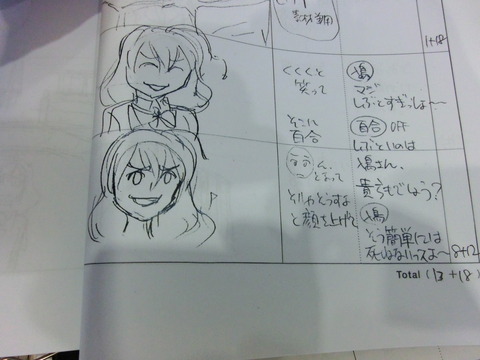 1+18
くくくと
笑って
そこに
百合
さん
とよって
そりゃそうすよ
と顔を上げて
鳰
マジ
しぶとすぎっしょ〜
百合 OFF
しぶといのは
鳰さん、
貴方もでしょう?
鳰
そう簡単には
死ねないっスよ〜
8+12
Total (13+18)